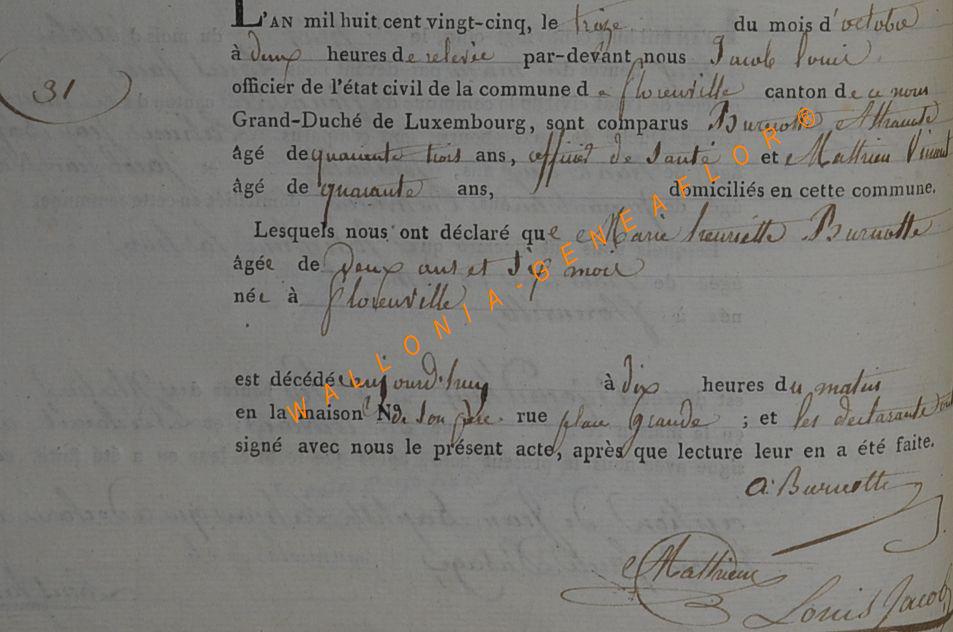 L'AN mil huit cent vingt-cinq, le treize du mois d'octobre
à deux heures de relevée par-devant nous Jacob Louis
31
officier de l'état civil de la commune de florenville canton de ce nom
Grand-Duché de Luxembourg, sont comparus Burnotte
âgé de quarante trois ans, officier de santé et Mathieu Vincent
âgé de quarante ans, domiciliés en cette commune.
Lesquels nous ont déclaré que Marie henriette Burnotte
âgée de Deux ans et Six mois
née à florenville
est décédée aujourd'huy à dix heures du matin
en la maison N de son père rue place grande ; et les declarants ont
signé avec nous le présent acte, après que lecture leur en a été faite.
a. Burnotte
Mathieu
Louis Jacob
WALLONIA-GENEAFLOR ®